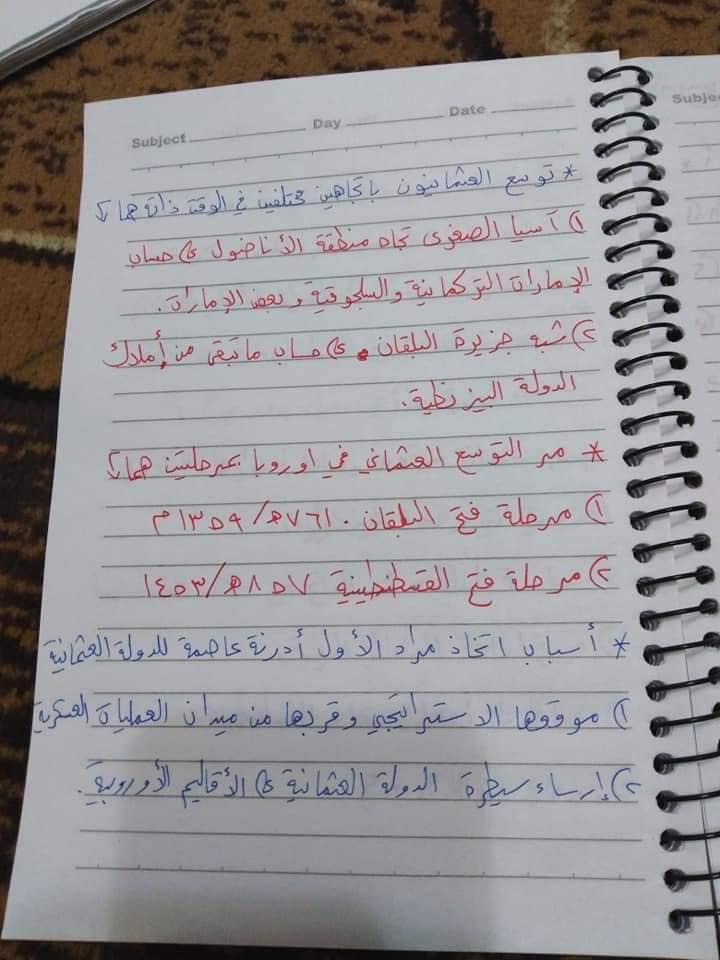 Subject Day Date
Subject
* توسع العثمانيون باتجاهين مختلفين في الوقت ذاته هما
١) آسيا الصغرى تجاه منطقة الأناضول على حساب
الإمارات التركمانية والسلجوقية وبعض الإمارات.
٢) شبه جزيرة البلقان على حساب ما تبقى من أملاك
الدولة البيزنطية.
* مر التوسع العثماني في اوروبا بمرحلتين هما
١) مرحلة فتح البلقان. ٧٦١هـ/١٣٥٩م
٢) مرحلة فتح القسطنطينية ٨٥٧هـ/١٤٥٣
* أسباب اتخاذ مراد الأول أدرنة عاصمة للدولة العثمانية
١) موقعها الاستراتيجي وقربها من ميدان العمليات العسكرية
٢) إرساء سيطرة الدولة العثمانية على الأقاليم الأوروبية.